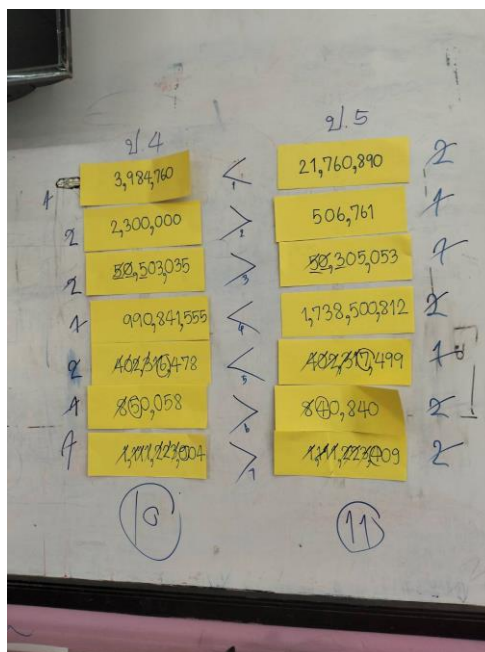 ป.4 ป.5
1 3,984,760 < 1 21,760,890 2
2 2,300,000 > 2 506,761 1
2 50,503,035 > 3 50,305,053 1
1 990,841,555 < 4 1,738,500,812 2
2 402,316,478 < 5 402,317,499 1
1 850,058 > 6 840,840 2
1 1,111,223,004 > 7 1,111,223,409 2
10 11